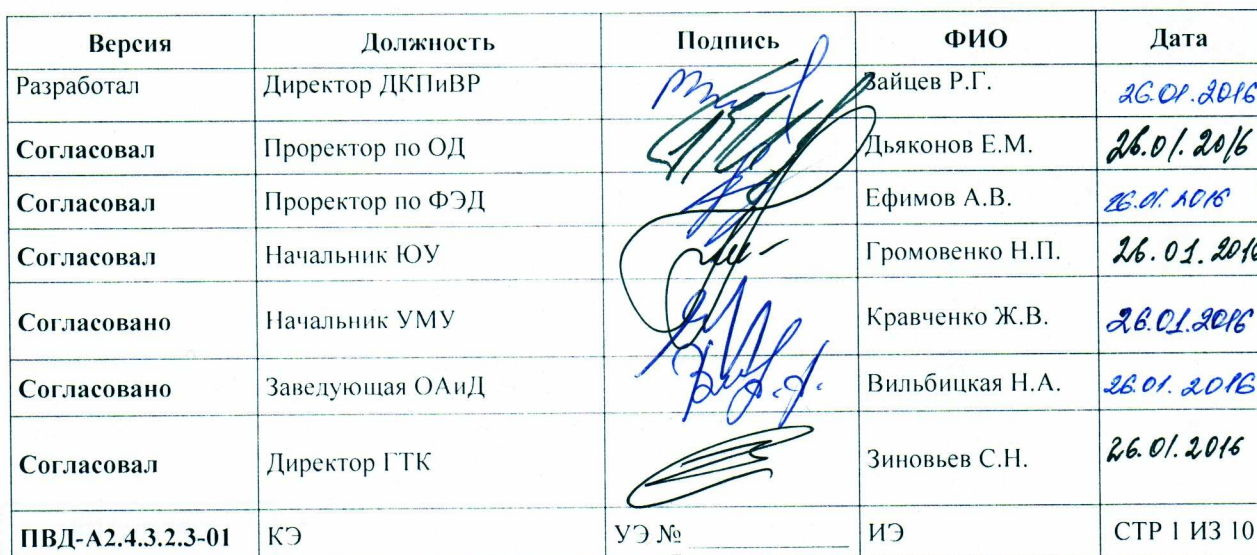 Версия Должность Подпись ФИО Дата
Разработал Директор ДКПиВР Зайцев Р.Г. 26.01.2016
Согласовал Проректор по ОД Дьяконов Е.М. 26.01.2016
Согласовал Проректор по ФЭД Ефимов А.В. 26.01.2016
Согласовал Начальник ЮУ Громовенко Н.П. 26.01.2016
Согласовано Начальник УМУ Кравченко Ж.В. 26.01.2016
Согласовано Заведующая ОАиД Вильбицкая Н.А. 26.01.2016
Согласовал Директор ГТК Зиновьев С.Н. 26.01.2016
ПВД-А2.4.3.2.3-01 КЭ УЭ № ИЭ СТР 1 ИЗ 10